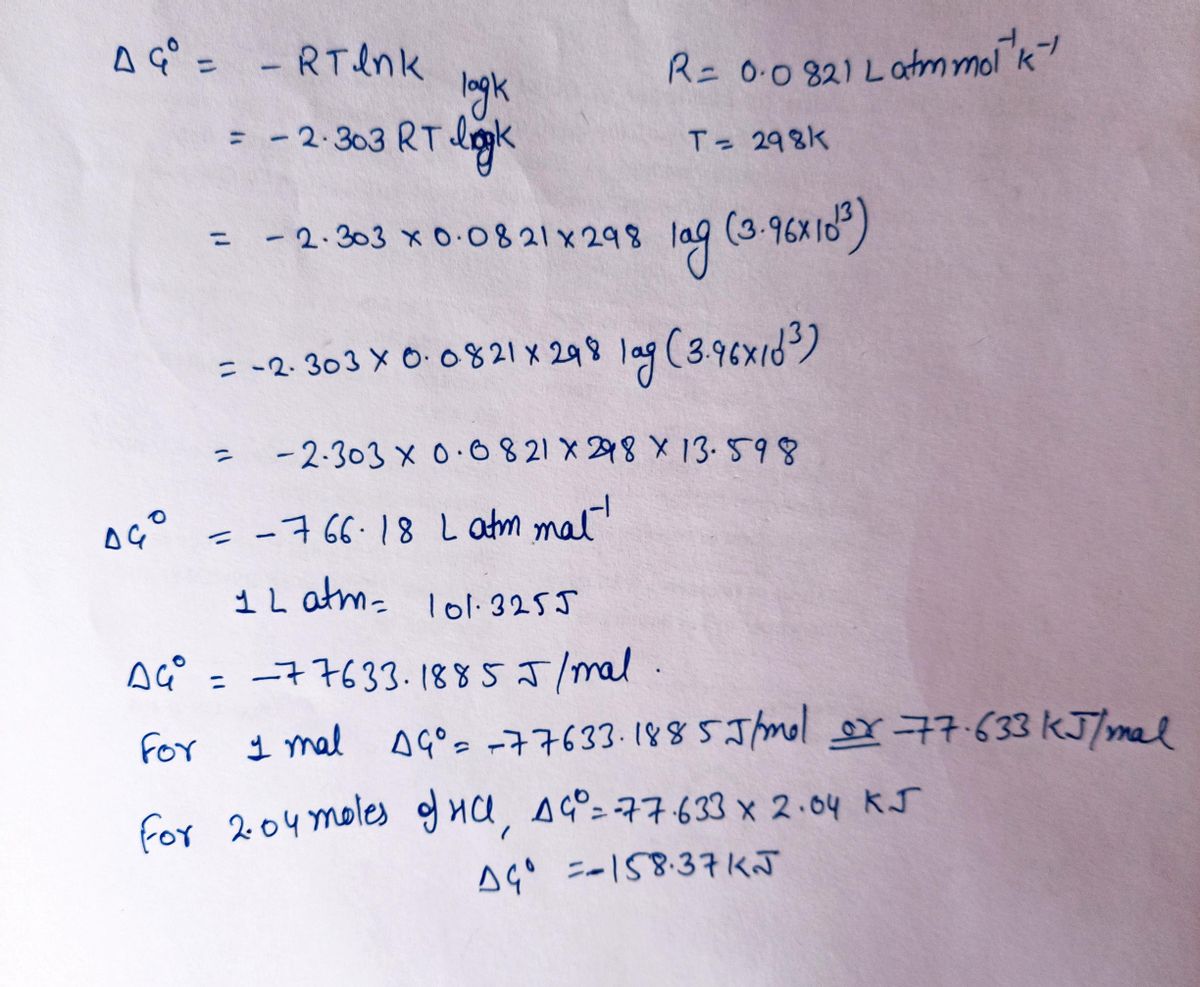 ΔG° = - RTlnk R = 0.0821 L atm mol⁻¹ k⁻¹
logk
= - 2.303 RT logk T = 298k
= - 2.303 × 0.0821 × 298 lag (3.96×10¹³)
= -2.303 × 0.0821 × 298 lag (3.96×10¹³)
= -2.303 × 0.0821 × 298 × 13.598
ΔG° = -766.18 L atm mal⁻¹
1 L atm = 101.325J
ΔG° = -77633.1885 J/mal.
For 1 mal ΔG° = -77633.1885J/mol or -77.633 KJ/mal
For 2.04 moles of HCl, ΔG° = -77.633 × 2.04 KJ
ΔG° = -158.37KJ